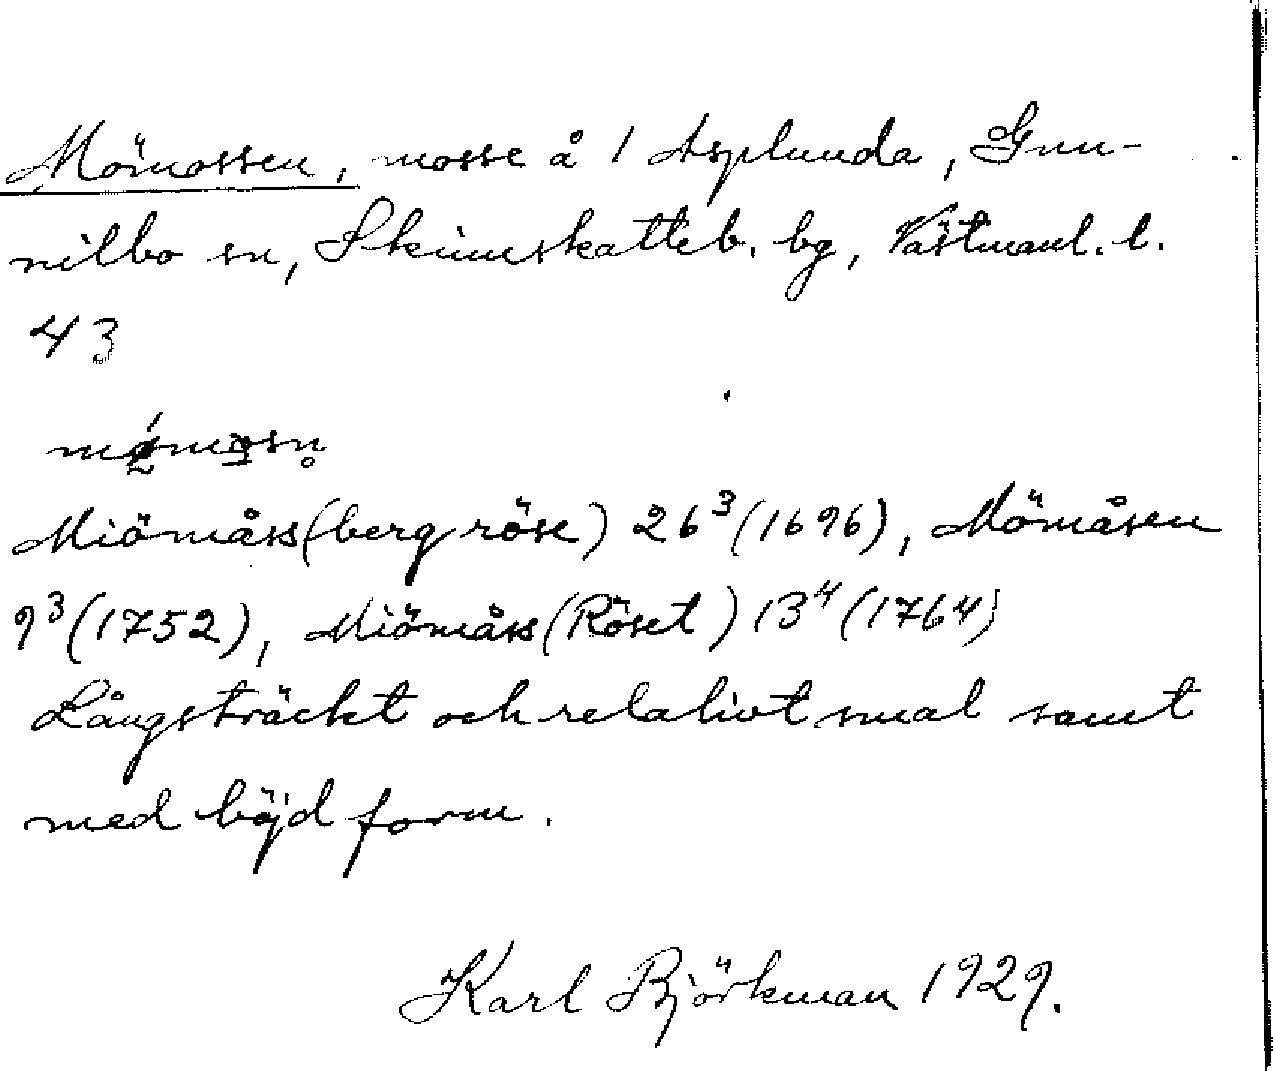 Mömossen, mosse å 1 Asplunda, Gun-
nilbo sn, Skinnskatteb. bg, Västmanl. l.
43
Miömåss(berg röse) 26³(1696), Mömåsen
9³(1752), Miömåss(Röset) 13⁴(1764)
Långsträckt och relativt smal samt
med böjd form.
Karl Björkman 1929.